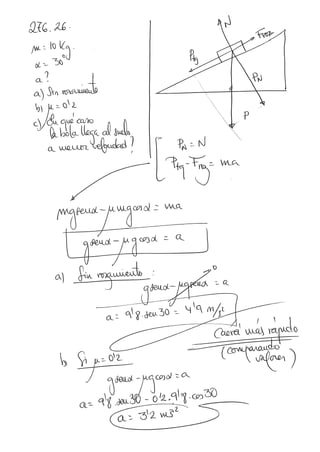 276.26.
m = 10 Kg.
α = 30°
a?
a) Sin rozamiento
b) μ = 0'2
c) En qué caso
la bola llega al suelo
a menor velocidad?
N
Froz
Ptg
PN
P
PN = N
Ptg - Froz = ma
mgsenα - μmgcosα = ma
gsenα - μgcosα = a
a) Sin rozamiento:
gsenα - μgcosα = a
0
a = 9'8 · sen 30 = 4'9 m/s²
Caerá más rápido
(comparando
valores)
b) Si μ = 0'2
gsenα - μgcosα = a
a = 9'8 · sen 30 - 0'2 · 9'8 · cos 30
a = 3'2 ms²